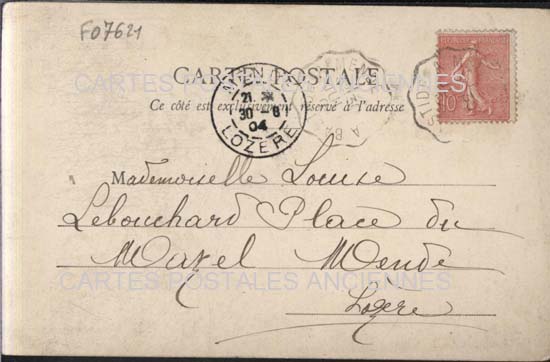 F07621
CARTE POSTALE
CARTES POSTALES ANCIENNES
Ce côté est exclusivement réservé à l'adresse
21
30 -8
04
LOZÈRE
10
Mademoiselle Louise
Lebouchard Place du
Mazel Mende
CARTES POSTALES ANCIENNES
Lozère